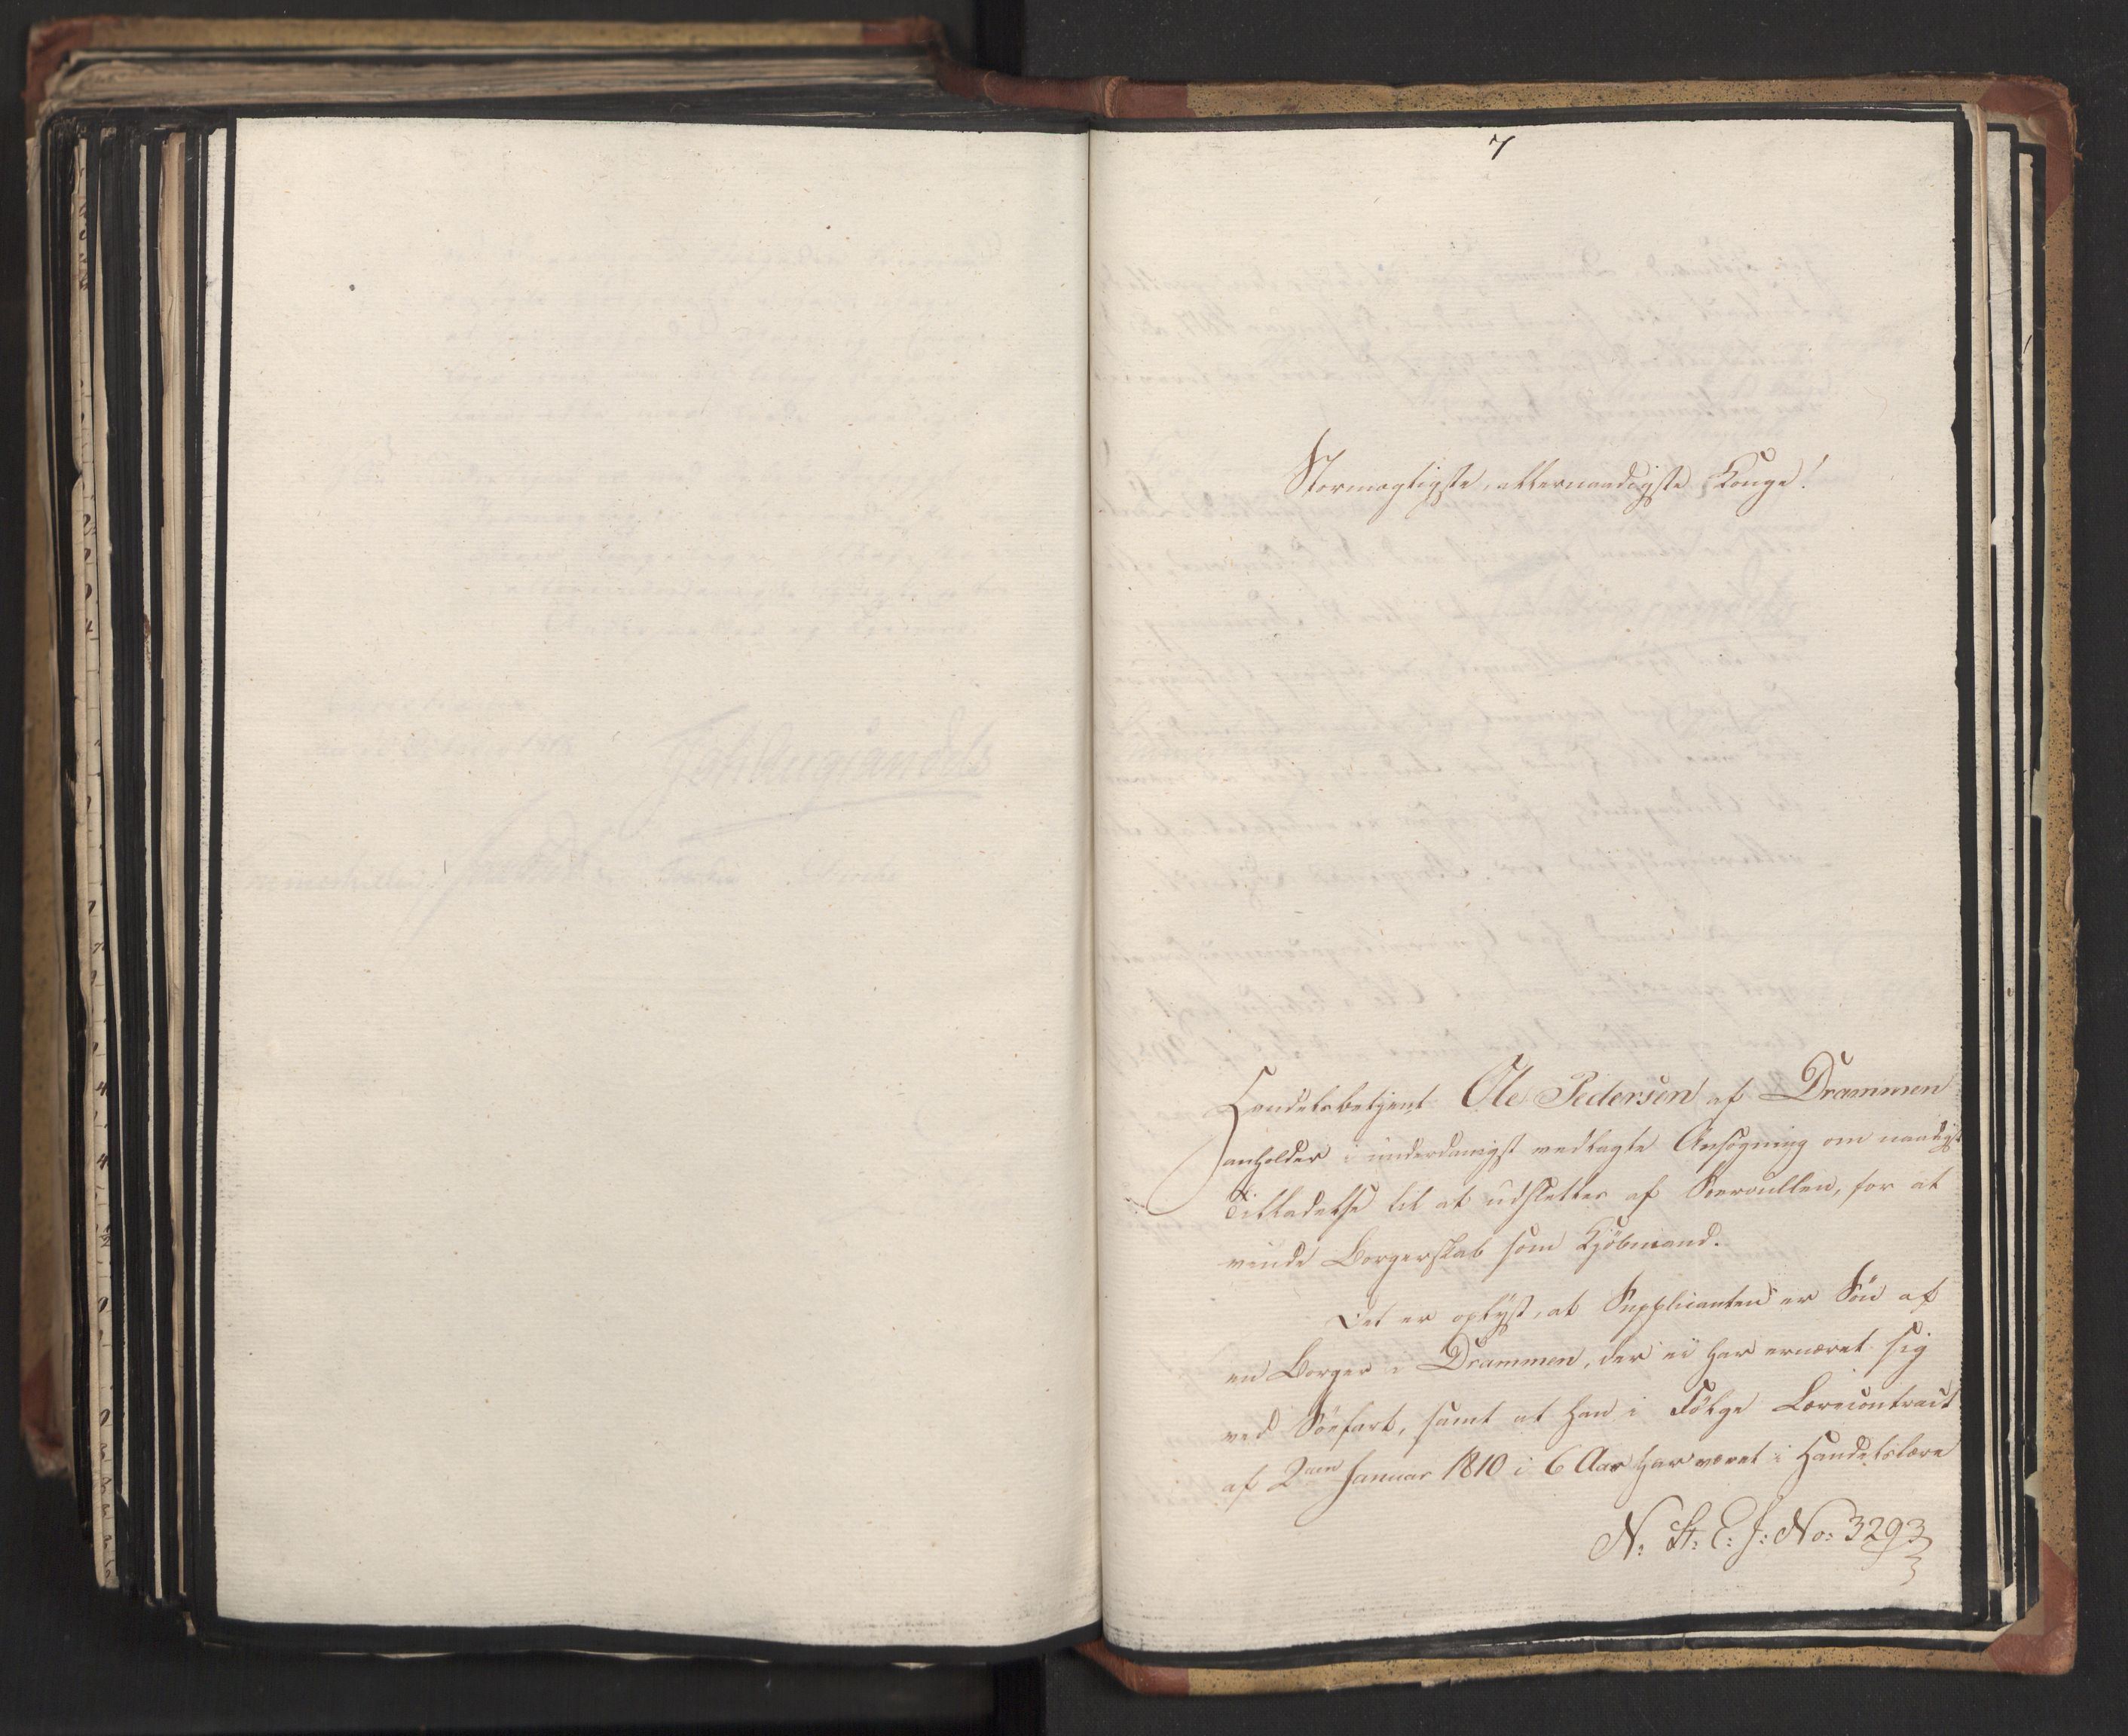 7
Stormægtigste, allernaadigste Konge!
Handelsbetjent Ole Pedersen af Drammen
anholder i underdanigst vedlagte Ansøgning om naadigst
Tilladelse til at udslettes af Søerullen, for at
vinde Borgerskab som Kjöbmand.
Det er oplyst, at Supplicanten er Sön af
en Borger i Drammen, der ei har ernæret sig
ved Söefart, samt at han i Fölge Lærecontract
af 2den Januar 1810 i 6 Aar har været i Handelslære
N: St: E: J: No: 3293